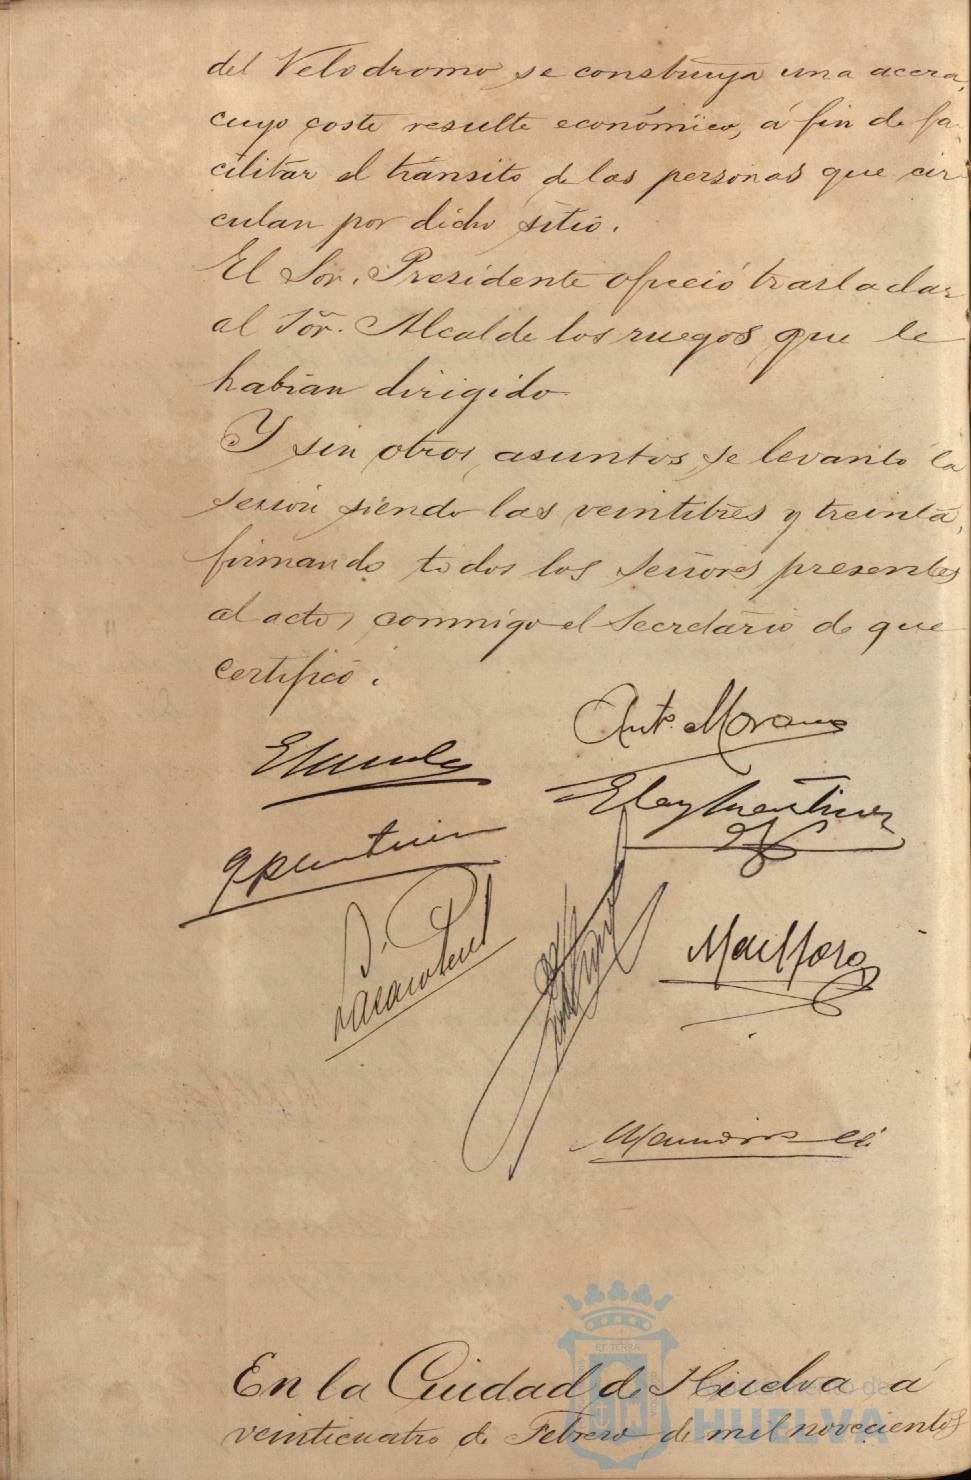 del Velodromo, se construya una acera,
cuyo coste resulte económico, á fin de fa
cilitar el tránsito de las personas que cir
culan por dicho sitio.
El Sor. Presidente ofreció trasladar
al Sor. Alcalde los ruegos que le
habian dirigido
Y sin otros asuntos, se levantó la
sesión siendo las veintitres y treinta,
firmando todos los Señores presentes
al acto, conmigo el Secretario de que
certifico.
Antº. Morano
Eloy Martinez
ET TERRA
En la Ciudad de Huelva á
Ayuntamiento de
HUELVA
veinticuatro de Febrero de mil novecientos